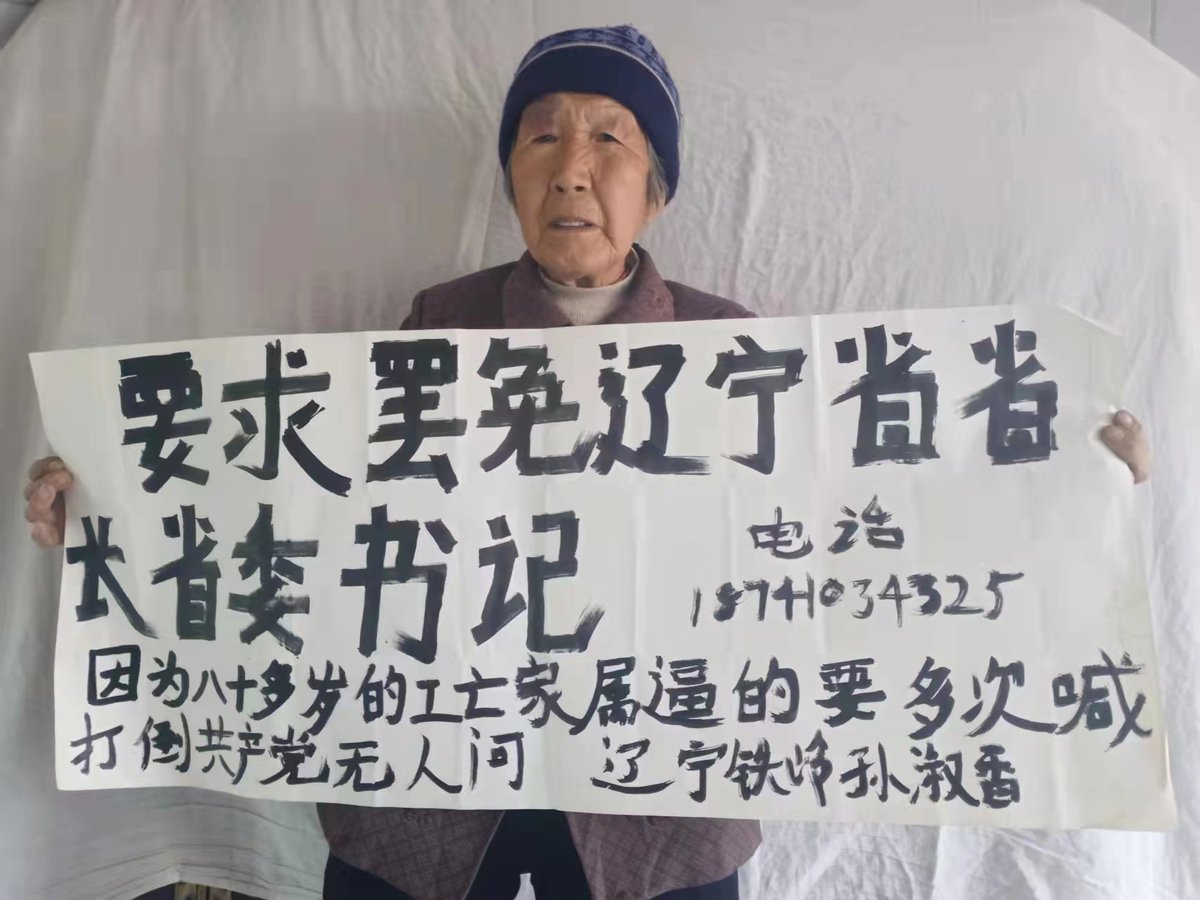 要求罢免辽宁省省
长省委书记
电话
18741034325
因为八十多岁的工亡家属逼的要多次喊
打倒共产党无人问 辽宁铁岭孙淑香